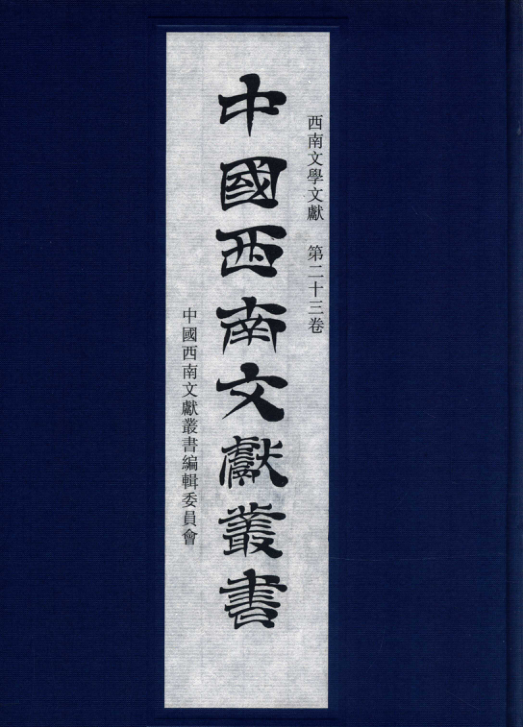 西南文學文獻 第二十三卷
中國西南文獻叢書
中國西南文獻叢書編輯委員會